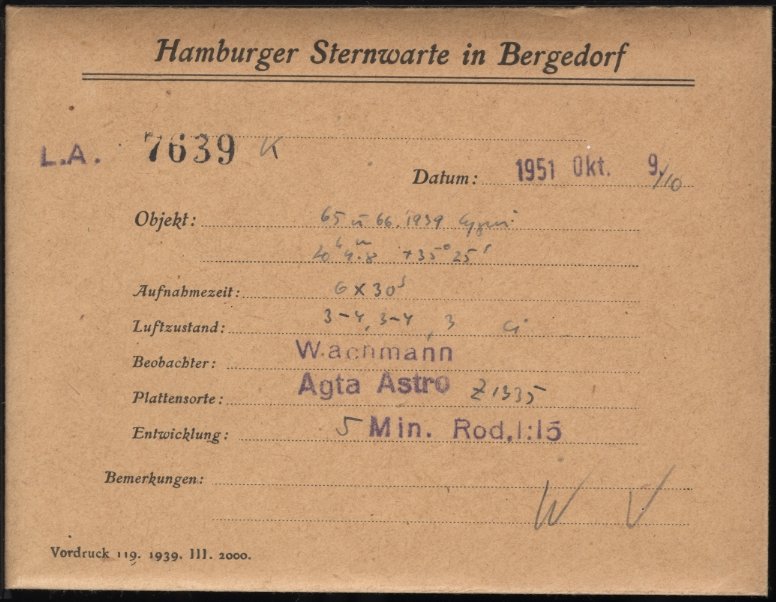 Hamburger Sternwarte in Bergedorf
L.A. 7639 K
Datum: 1951 Okt. 9/10
Objekt: 65 u 66.1939 Cygni
20h 9m.8 +35° 25'
Aufnahmezeit: 6 x 30s
Luftzustand: 3-4, 3-4, 3 Ci
Beobachter: Wachmann
Plattensorte: Agfa Astro Z1335
Entwicklung: 5 Min. Rod.1:15
Bemerkungen:
W V
Vordruck 119. 1939. III. 2000.